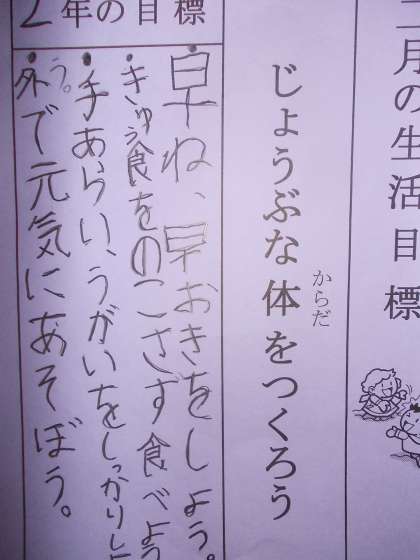 月の生活目標
じょうぶな体をつくろう
からだ
2年の目標
・早ね、早おきをしよう。
・きゅう食をのこさず食べよう
・手あらい、うがいをしっかりしよ
う。
・外で元気にあそぼう。